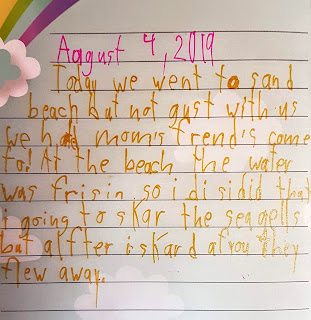 August 4, 2019
Today we went to sand
beach but not gust with us
we had mom's frend's come
to! At the beach the water
was frisin so i disidid that
i going to skar the seagulls
but affter i skard afou they
flew away.